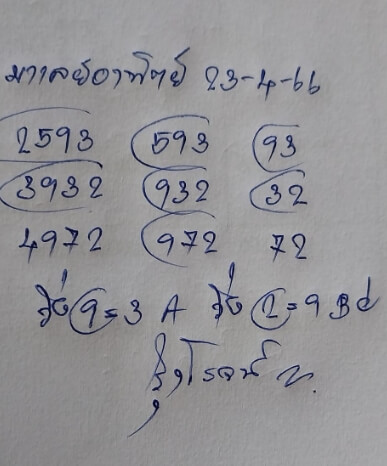 มาเลย์อาทิตย์ 23-4-66
2593 593 93
3932 932 32
4972 972 72
วิ่ง 9=3 A วิ่ง 2=9 Bd
รุ่งโรจน์ ท.